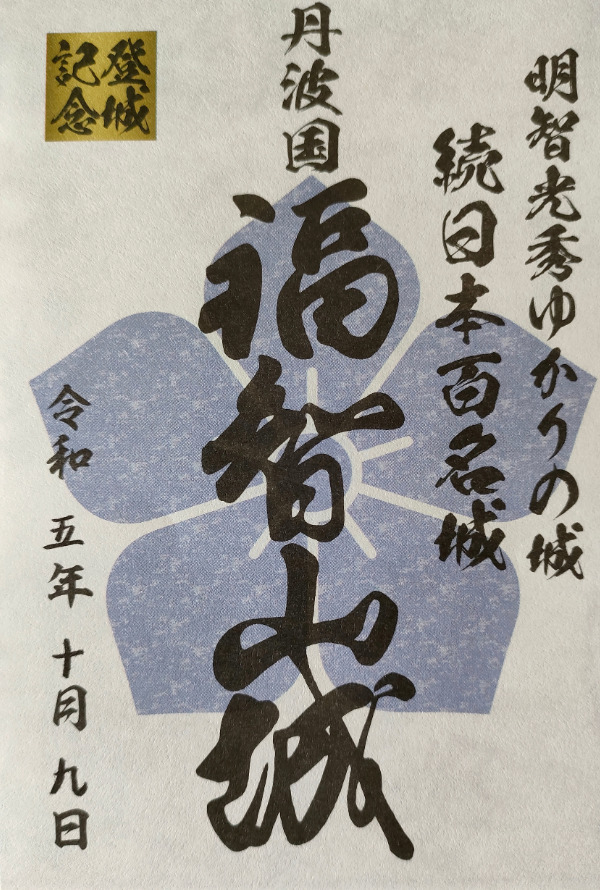 明智光秀ゆかりの城
続日本百名城
丹波国
福智山城
登城
記念
令和 五年 十月 九日